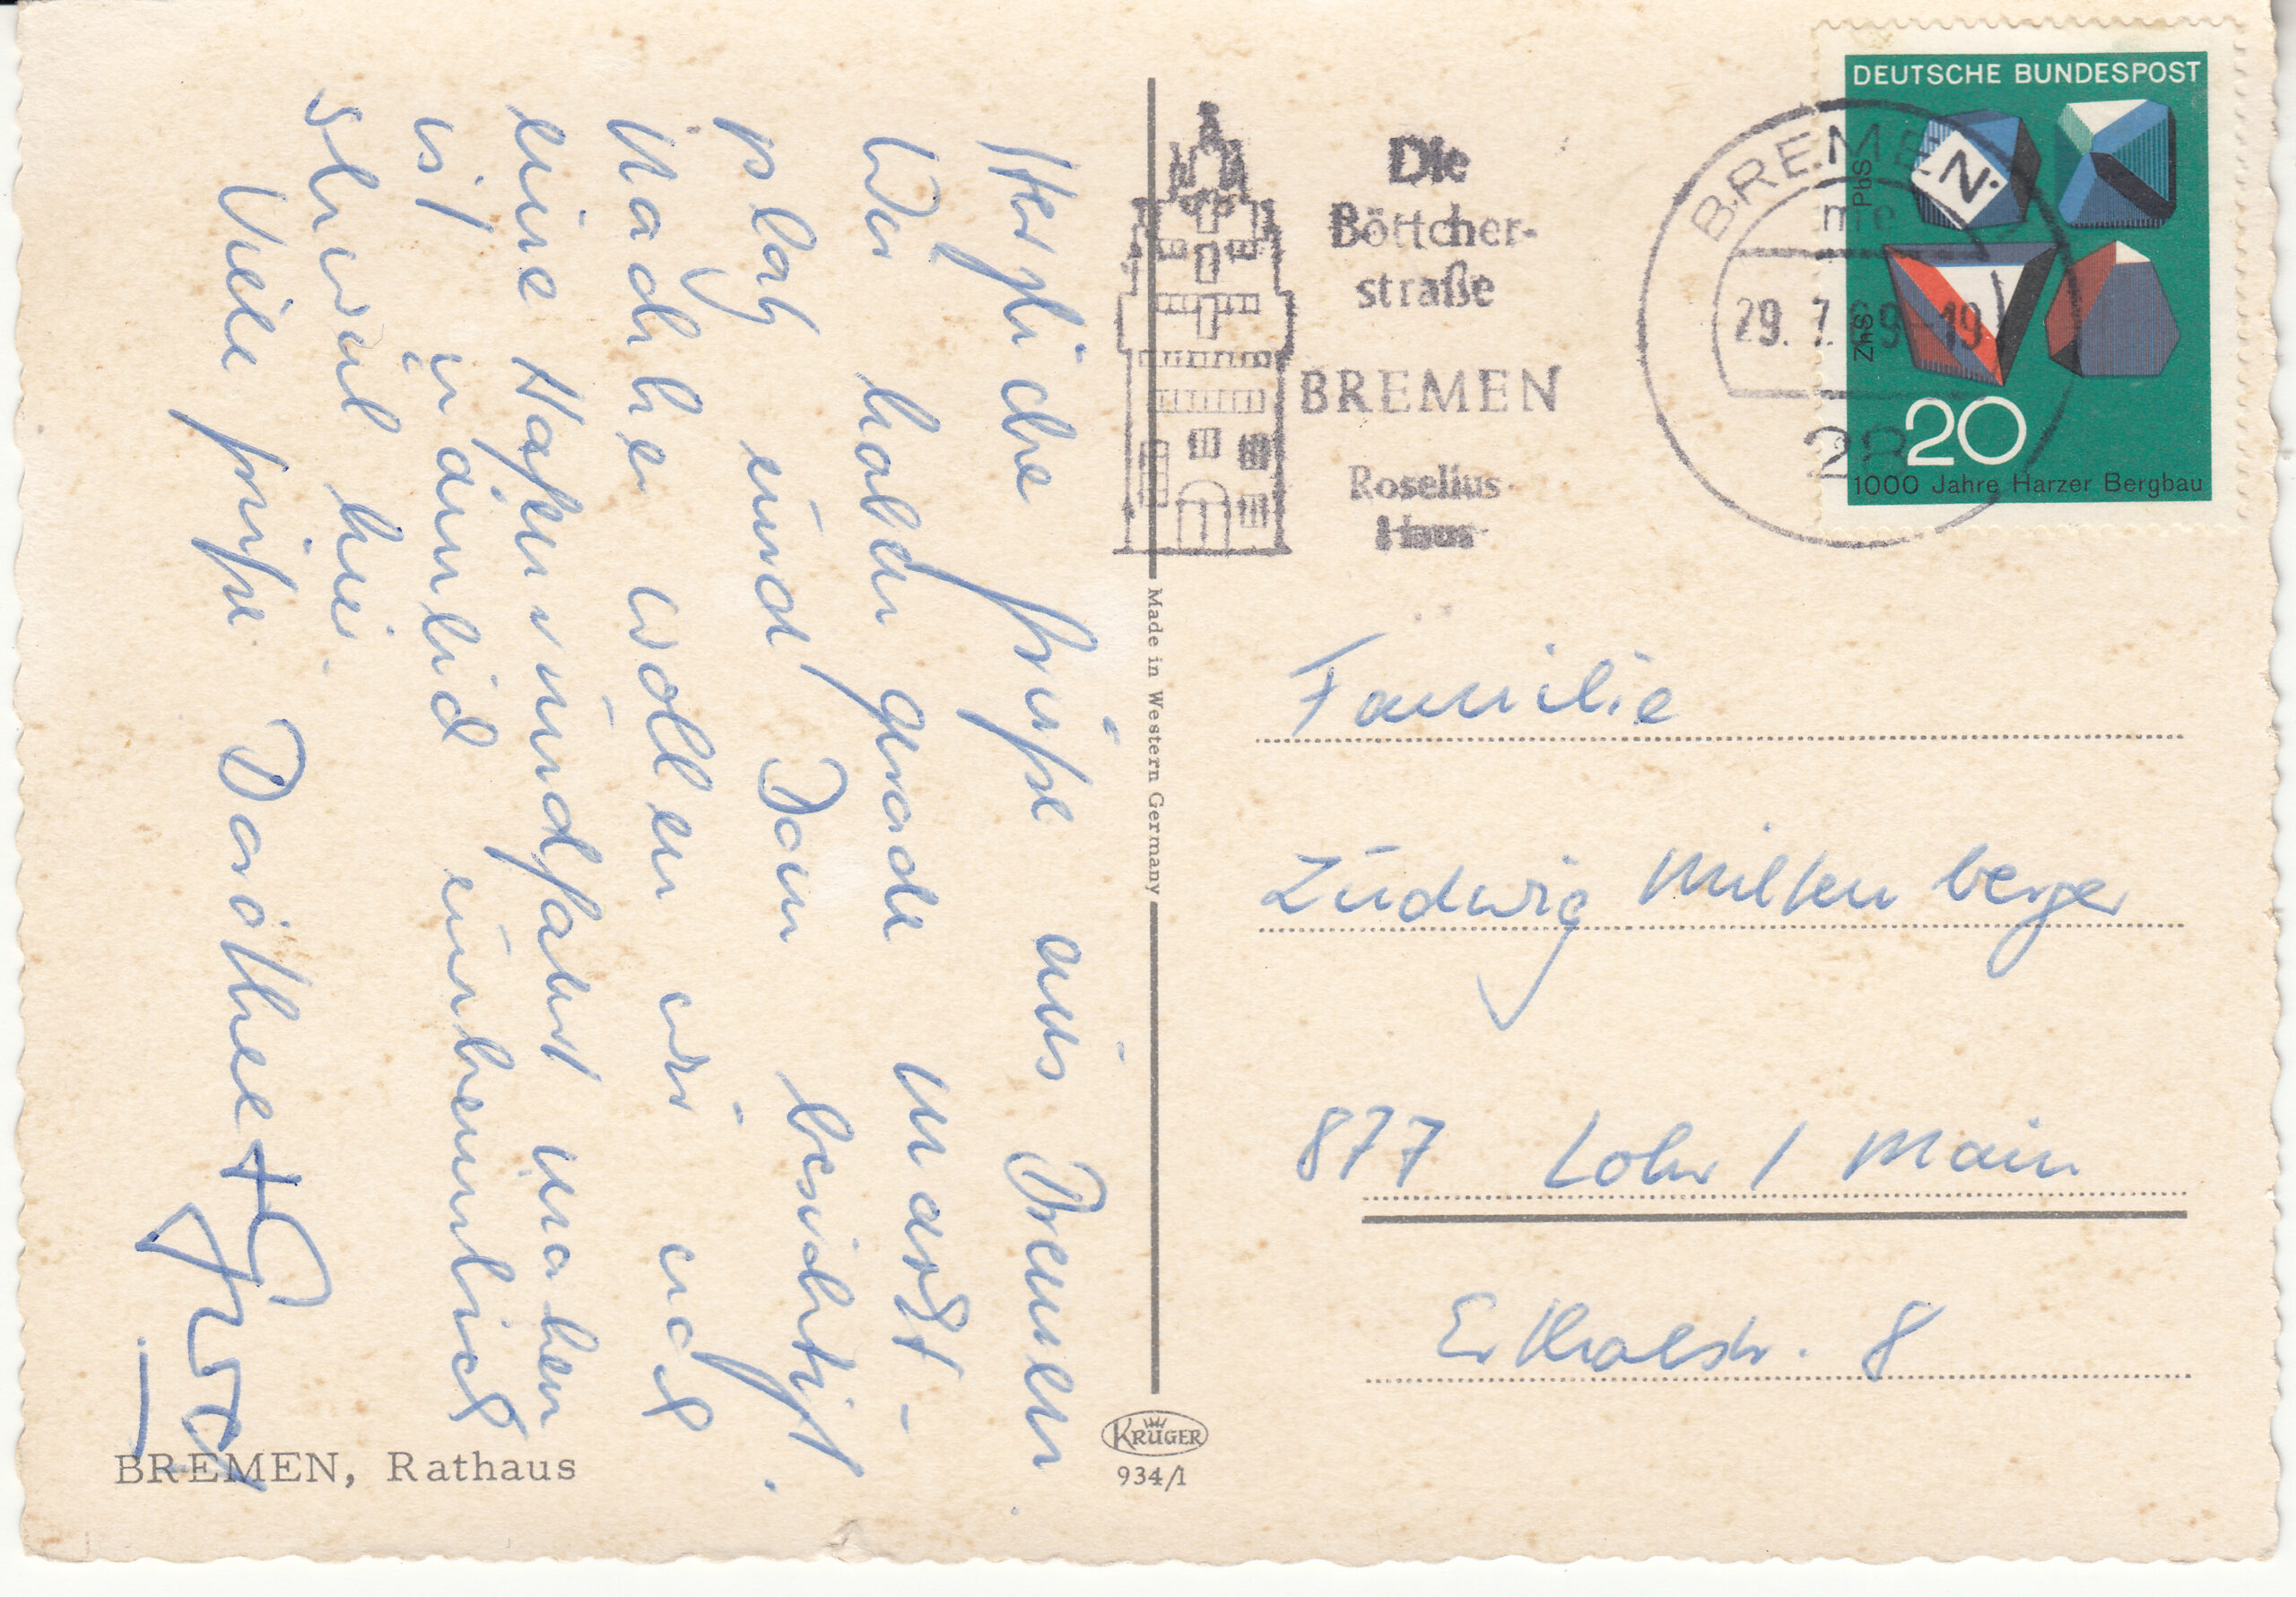 Herzliche Grüße aus Bremen.
Wir haben gerade Markt-
platz und Dom besichtigt.
Nachher wollen wir noch
eine Hafenrundfahrt machen
ist nämlich unheimlich
schwül hier.
Viele Grüße Dorothee +
BREMEN, Rathaus
Made in Western Germany
KRÜGER
934/1
Die
Böttcher-
straße
BREMEN
Roselius
Haus
BREMEN
29. 7. 69-19
28
DEUTSCHE BUNDESPOST
PbS
ZnS
20
1000 Jahre Harzer Bergbau
Familie
Ludwig Miltenberger
877 Lohr / Main
Erthalstr. 8